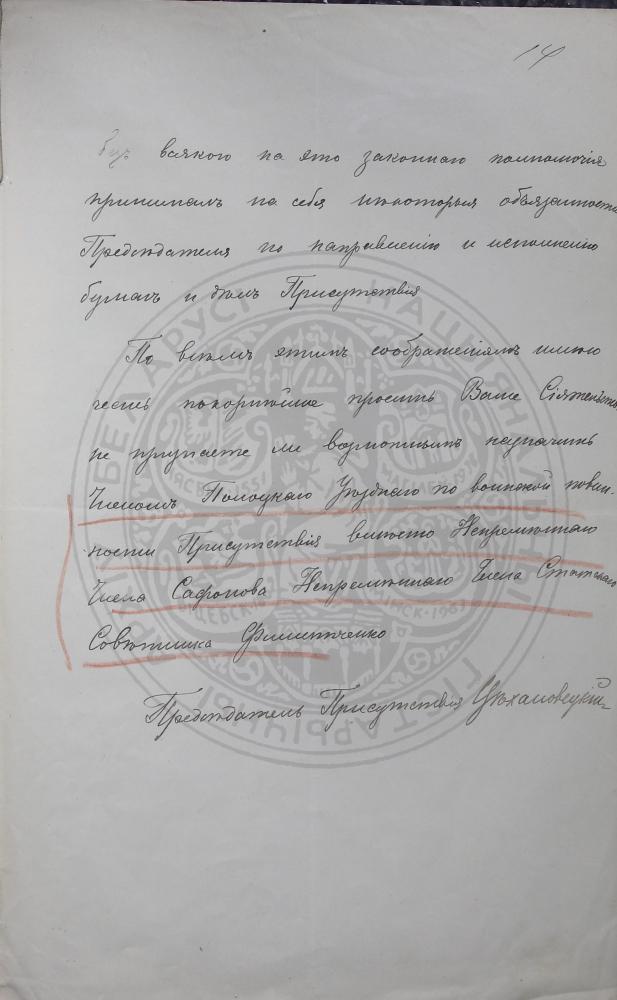 14
безъ всякого на это законнаго полномочія
принималъ на себя нѣкоторыя обязанности
Предсѣдателя по направленію и исполненію
бумагъ и дѣлъ Присутствія
По всѣмъ этимъ соображеніямъ имѣю
честь покорнѣйше просить Ваше Сіятельство
не признаете ли возможнымъ назначить
Членомъ Полоцкаго Уѣзднаго по воинской повин-
ности Присутствія вмѣсто Непремѣннаго
Члена Сафонова Непремѣннаго Члена Статскаго
Совѣтника Филипченко
Предсѣдатель Присутствія Цѣхановецкій